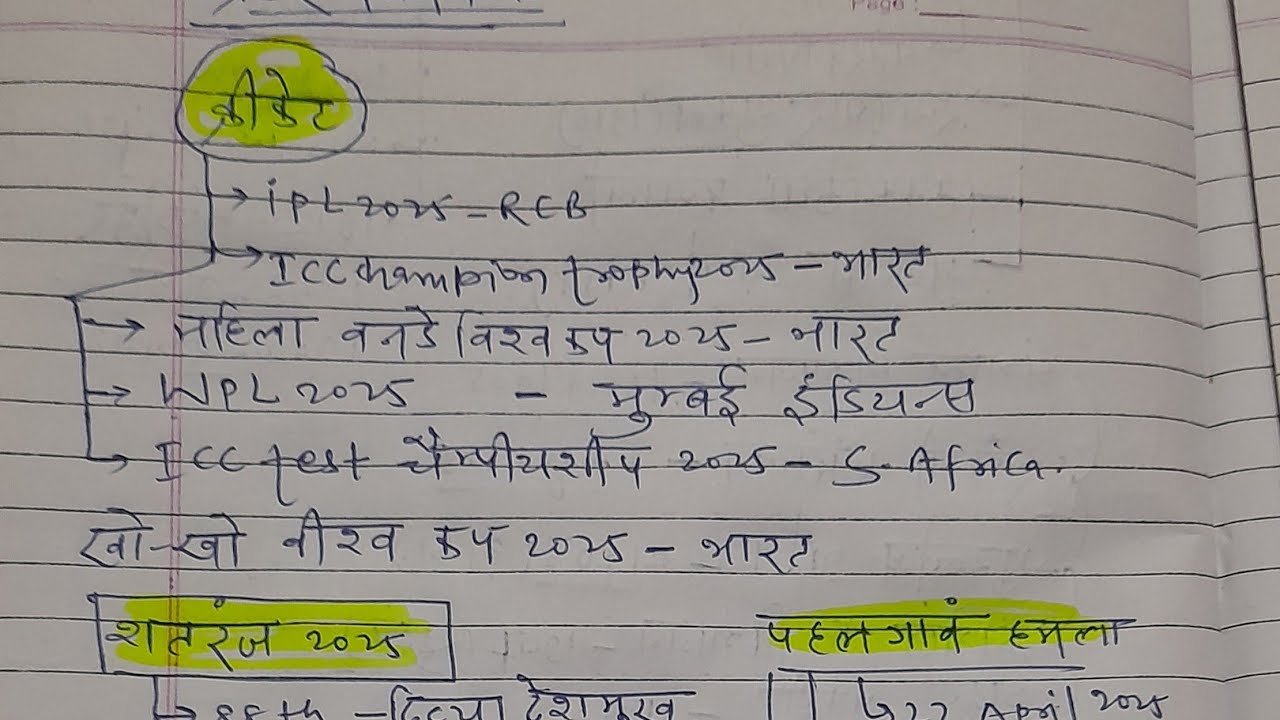 Page :
क्रीकेट
iPL 2025 - RCB
ICC Champion trophy 2025 - भारत
महिला वनडे विश्व कप 2025 - भारत
WPL 2025 - मुम्बई इंडियन्स
ICC test चैम्पीयशीप 2025 - S. Africa.
खो-खो वीश्व कप 2025 - भारत
शतरंज 2025
पहलगावं हमला
88th - दिव्या देशमुख
22 April 2025